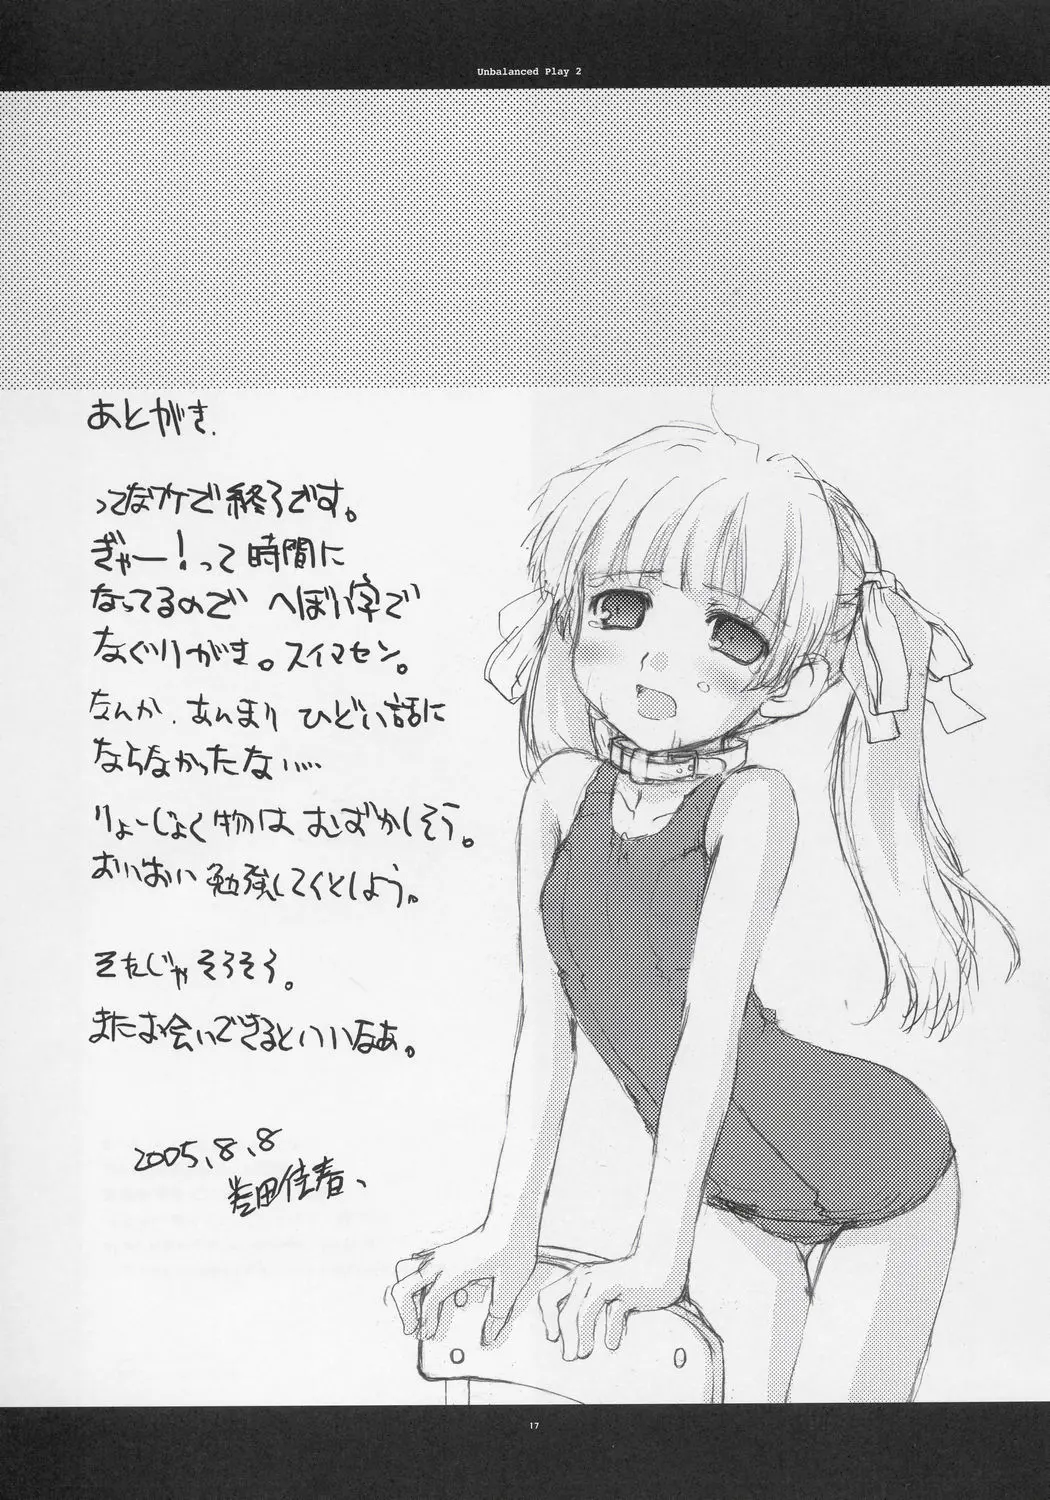 Unbalanced Play 2
あとがき.
ってなワケで終了です。
ぎゃー！って時間に
なってるので へぼい字で
なぐりがき。スイマセン。
なんか、あんまり ひどい話に
ならなかったない…
りょーじょく物は むずかしそう。
おいおい 勉強してくとしよう。
そんじゃそろそろ。
またお会いできるといいなあ。
2005.8.8
佳春、
17